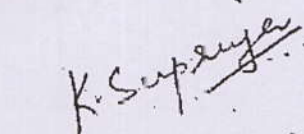 K. Supriya